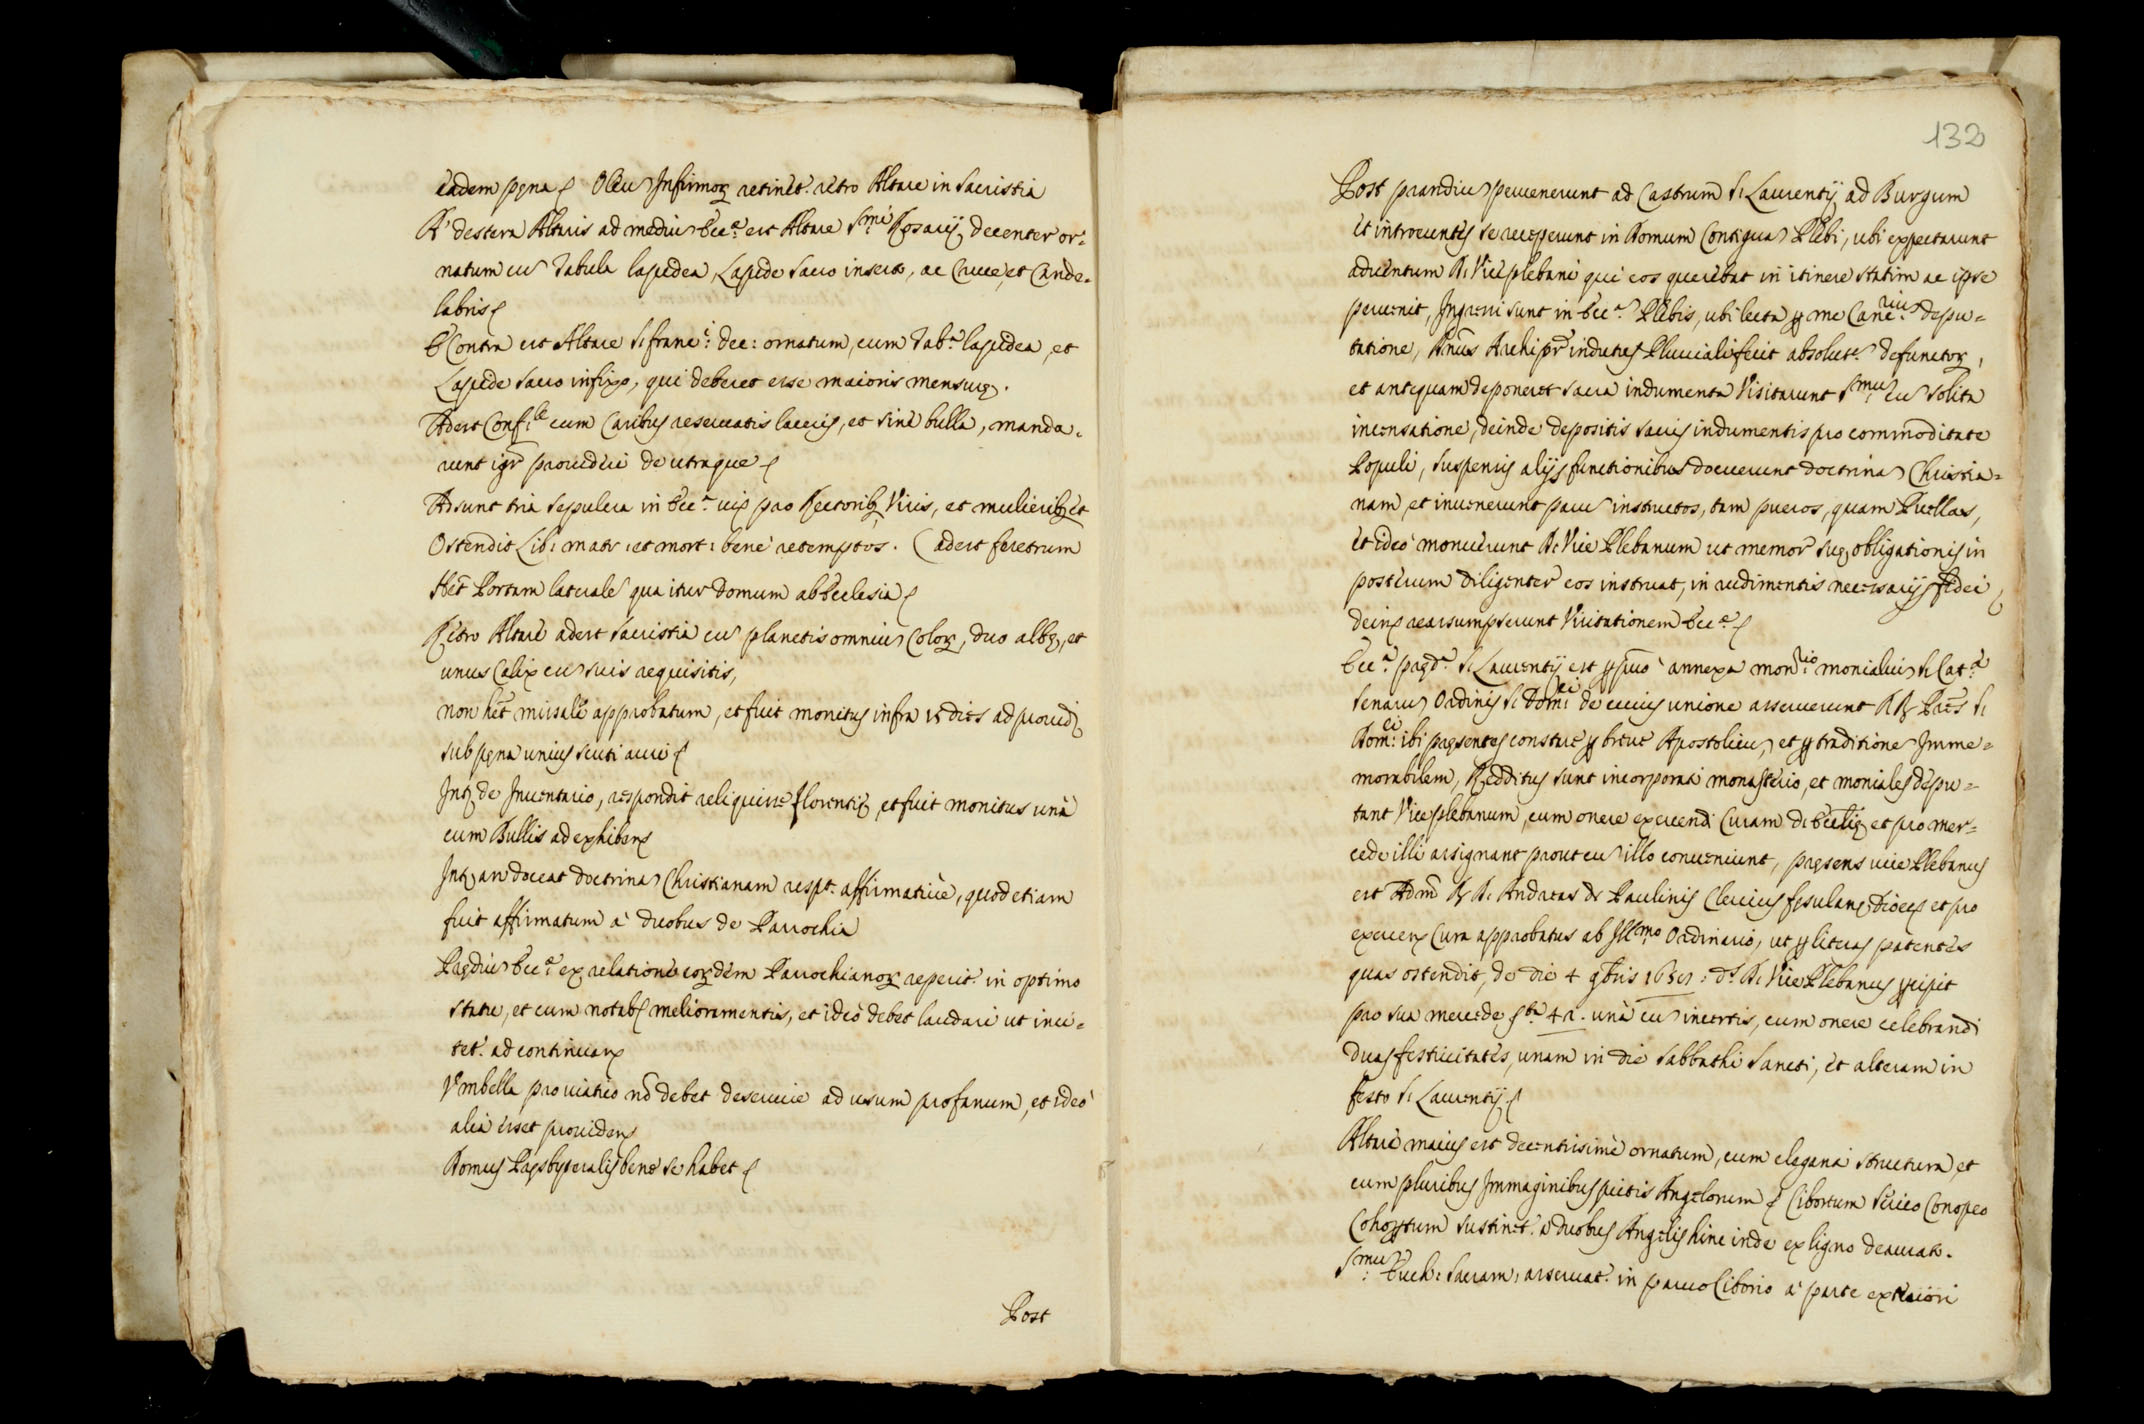 eadem pęna Oleu Infirmor retinet.r retro Altare in Sacristia
A' destera Altaris ad mediu Ecc.a est Altare S.mi Rosarij decenter or=
natum cu Tabula lapidea, Lapide Sacro inserto, ac Cruce, et Cande=
labris
E Contra est Altare S. Franc.i dec: ornatum, cum Tab.a lapidea, et
Lapide sacro infixo, qui deberet esse maioris mensurę.
Adest Conf.le cum Casibus reservatis laceris, et sine bulla, manda=
runt igr provideri de utraque
Adsunt tria Sepulcra in Ecc.a pro Rectorib, Viris, et mulierib, et
Ostendit Lib: matr: et mort: bene retemptos. (adest feretrum
Het Portam laterale qua itur domum ab Ecclesia
Retro Altare adest Sacristia cu planetis omniu Color, duo albę, et
unus Calix cu suis requisitis,
non het missale approbatum, et fuit monitus infra 15 dies ad provid
sub pęna unius scuti auri
Int de Inventario, respondit reliquisse Florentię, et fuit monitus unà
cum Bullis ad exhiben
Int an doceat doctrina Christianam resp.t affirmative, quod etiam
fuit affirmatum à duobus de Parrochia
Prędic Ecc.a ex relatione eordem Parrochianor reperit.r in optimo
statu, et cum notab melioramentis, et ideò debet laudari ut inci=
tet.r ad continuan
Vmbella pro viatico nō debet deservire ad usum profanum, et ideò
alia esset providen
Domus Pręsbyteralis bene se habet
Post
132
Post prandiu pervenerunt ad Castrum S. Laurentij ad Burgum
et introeuntes se receperunt in Domum Contigua Plebi, ubi expectarunt
adventum D. Vice plebani qui eos querebat in itinere statim ac ipse
pervenit, Ingressi sunt in Ecc.a Plebis, ubi lecta p me Canc.riu depu=
tatione, Dnus Archipr indutus Pluviali fecit absolut.e defunctor,
et antequam deponeret sacra indumenta Visitarunt S.mu cu solita
incensatione, deinde depositis sacris indumentis pro commoditate
Populi, suspensis alijs functionibus docuerunt doctrina Christia=
nam et invenerunt paru instructos, tam pueros, quam Puellas,
et ideò monuerunt D. Vice Plebanum ut memor suę obligationis in
posterum diligenter eos instruat, in rudimentis necessarijs fidei,
dein reassumpserunt Visitationem Ecc.ę
Ecc.a pręd.a S. Laurentij est annexa mon.rio monialiu S. Cat.ę
Senaru Ordinis S. Dom.ci de cuius unione asseruerunt RR Pres S.
Dom.ci ibi pręsentes constare p breve Apostolicu, et p traditione Imme=
morabilem, Redditus sunt incorporati monasterio, et moniales depu=
tant Vice plebanum, cum onere exercendi Curam D. Ecclię et pro mer=
cede illi assignant prout cu illo conveniunt, pręsens vice Plebanus
est Adm R. D. Andreas de Paulinis Clericus Fesulanę Dioces et pro
exercen Cura approbatus ab Ill.mo Ordinario, ut p literas patentes
quas ostendit, de die 4 9bris : D.s D. Vice Plebanus pcipit
pro sua mercede unà cu incertis, cum onere celebrandi
duas festivitates, unam in die Sabbathi Sancti, et alteram in
festo S. Laurentij
Altare maius est decentissimè ornatum, cum eleganti structura, et
cum pluribus Immaginibus pictis Angelorum Ciborium Serico Conopeo
Cohoptum sustinet.r à duobus Angelis hinc inde ex ligno deaurat.
S.mu Euch: Sacram, asservat.r in parvo Ciborio à parte exteriori